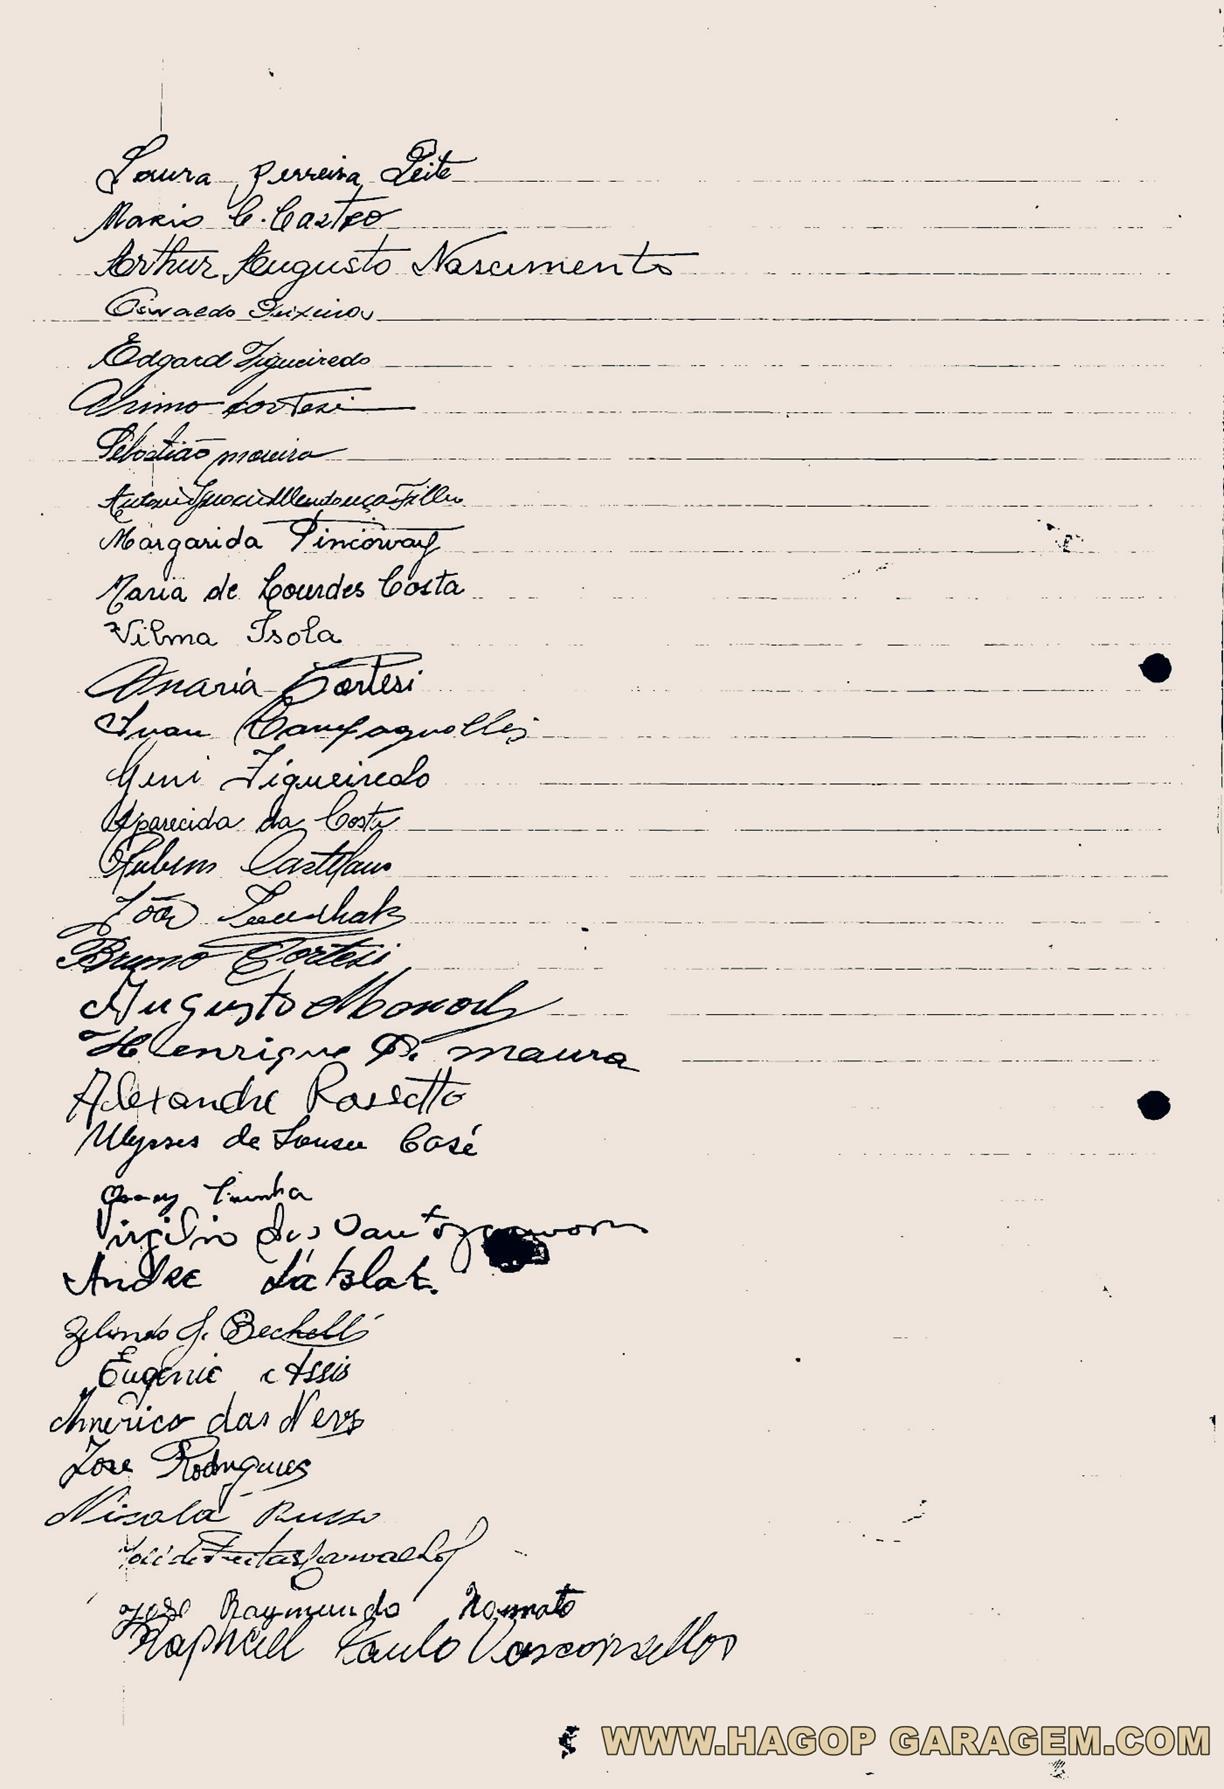 Laura Ferreira Leite
Mario C. Castro
Arthur Augusto Nascimento
Oswaldo Teixeira
Edgard Figueiredo
Cortesi
Sebastião Moreira
Mendonça Filho
Margarida
Maria de Lourdes Costa
Vilma Isola
Maria Cortesi
Ivan Campagnolli
Figueiredo
Aparecida da Costa
Rubens Castellano
João
Bruno Cortesi
Augusto
Henrique P. Maura
Alexandre Rossetto
Ulysses de Sousa Casé
Virgilio dos Santos
Andre
Zelindo J. Bechelli
Eugenio Assis
Americo das Neves
Jose Rodrigues
Nicola Russo
José de Freitas Carvalho
Jose Raymundo Nonnato
Raphael Paulo Vasconsellos
WWW.HAGOP GARAGEM.COM